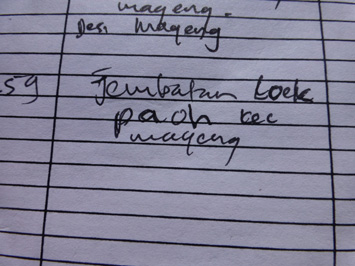 mageng.
Desi Mageng
59 Jembatan Loek
paoh kec
mageng